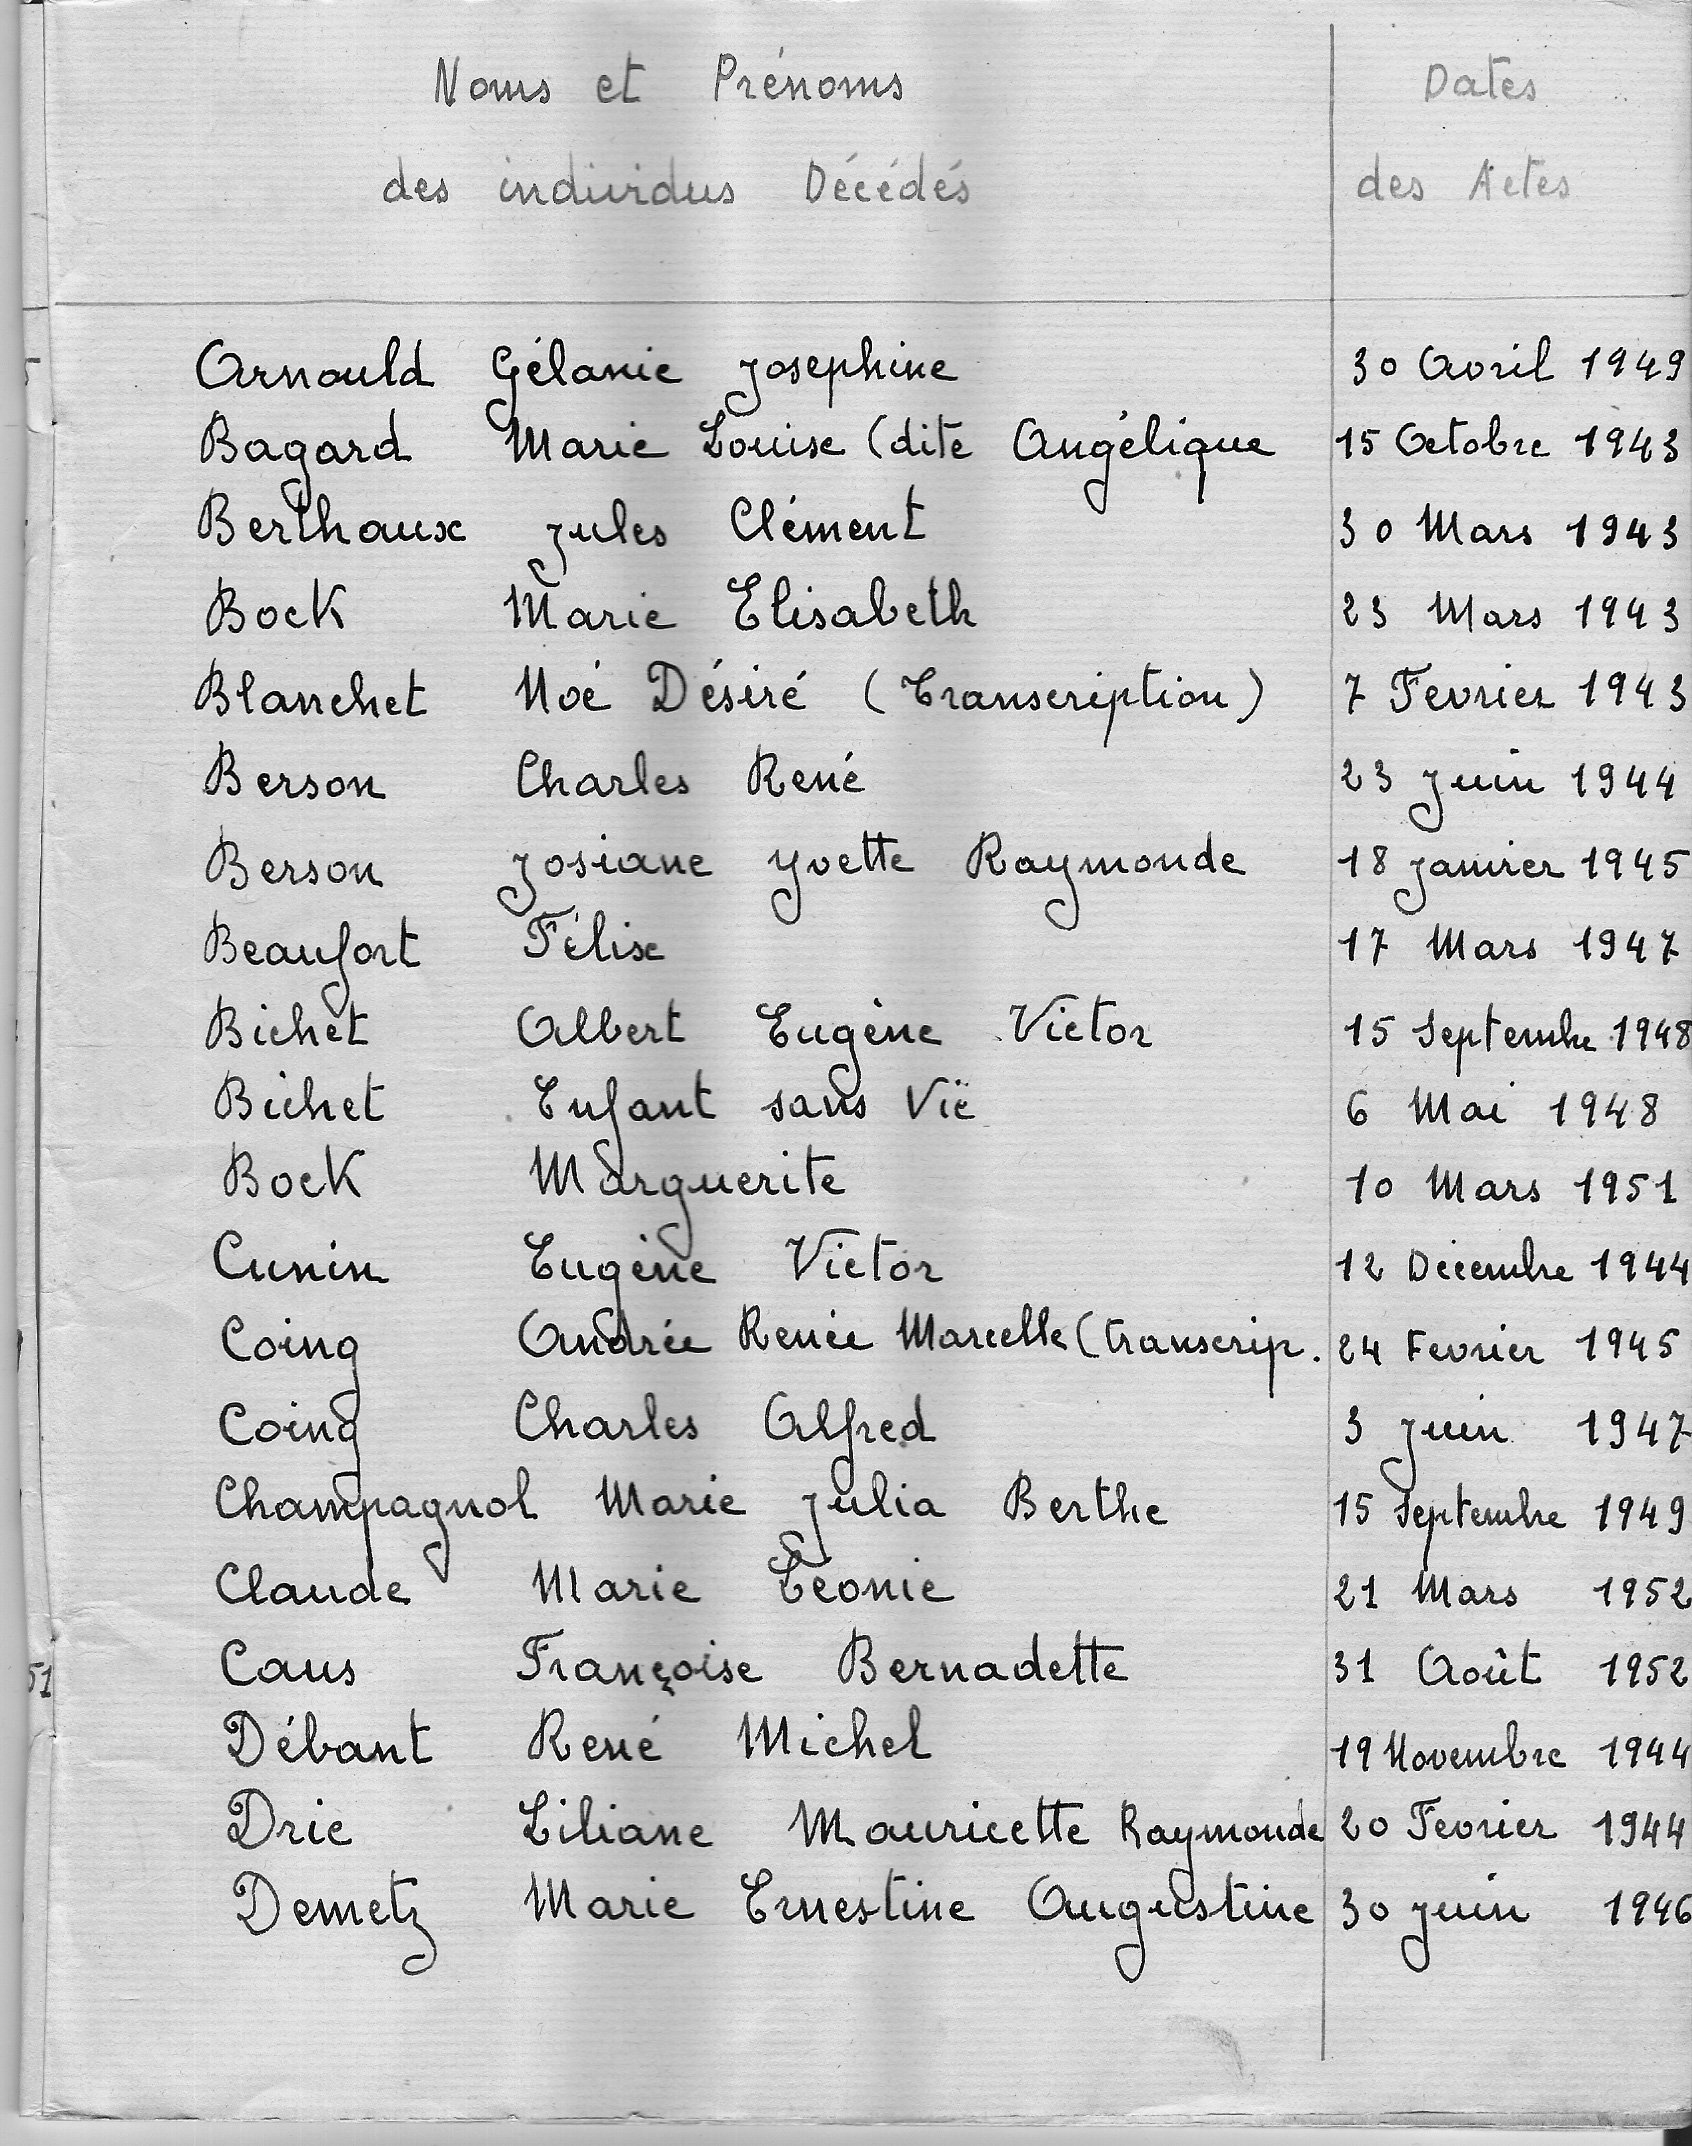 Noms et Prénoms Dates
des individus Décédés des Actes
Arnould Gélanie Josephine 30 Avril 1949
Bagard Marie Louise (dite Angélique 15 Octobre 1943
Berthaux Jules Clément 30 Mars 1943
Bock Marie Elisabeth 23 Mars 1943
Blanchet Noé Désiré (Transcription) 7 Fevrier 1943
Berson Charles René 23 Juin 1944
Berson Josiane Yvette Raymonde 18 Janvier 1945
Beaufort Félix 17 Mars 1947
Bichet Albert Eugène Victor 15 Septembre 1948
Bichet Enfant sans Vië 6 Mai 1948
Bock Marguerite 10 Mars 1951
Cunin Eugène Victor 12 Décembre 1944
Coing Andrée Renée Marcelle (transcrip. 24 Fevrier 1945
Coing Charles Alfred 3 Juin 1947
Champagnol Marie Julia Berthe 15 Septembre 1949
Claude Marie Léonie 21 Mars 1952
51 Caus Françoise Bernadette 31 Août 1952
Débant René Michel 19 Novembre 1944
Drie Liliane Mauricette Raymonde 20 Fevrier 1944
Demetz Marie Ernestine Augustine 30 Juin 1946